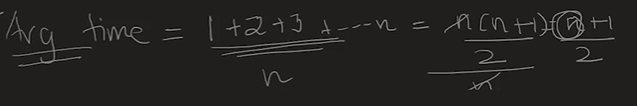 Avg time = 1+2+3+---n / n = n(n+1)/2 / n = n+1 / 2